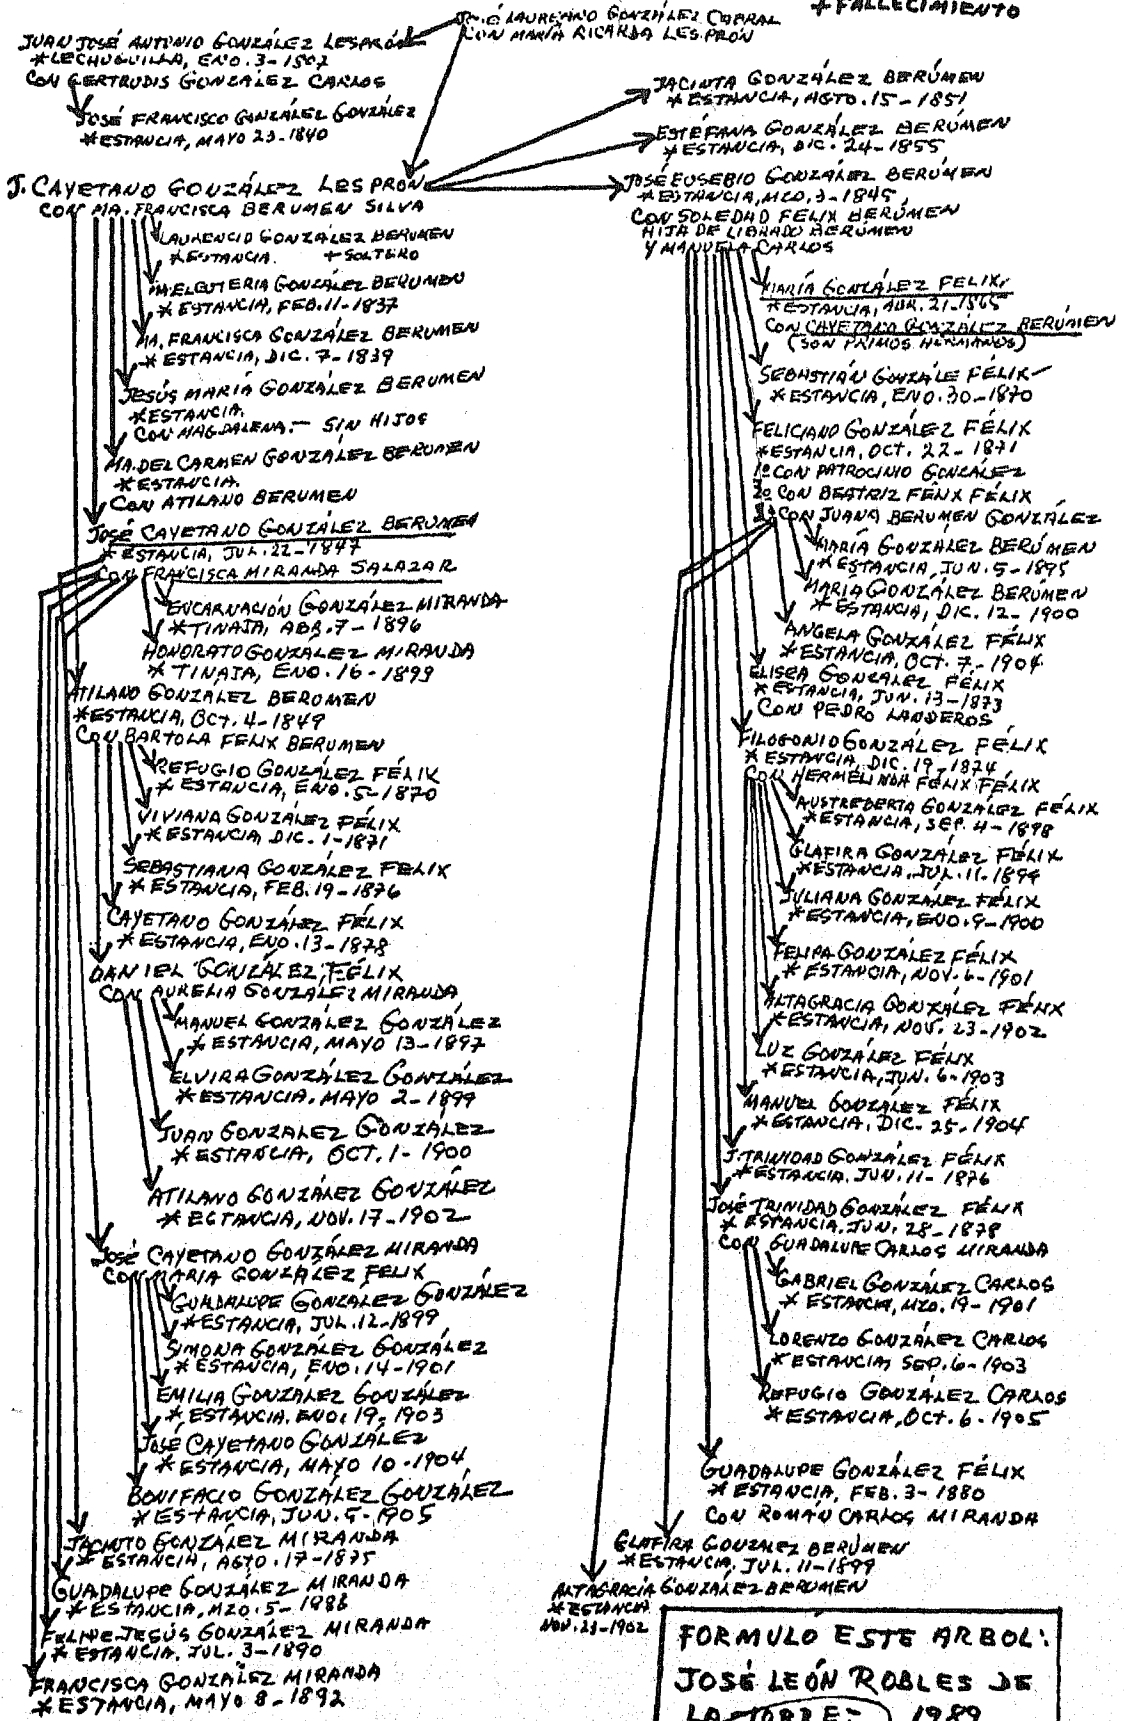 + FALLECIMIENTO
JOSÉ LAUREANO GONZÁLEZ CABRAL
CON MARÍA RICARDA LES PRÓN
JUAN JOSÉ ANTONIO GONZÁLEZ LESPRÓN
*LECHUGUILLA, ENO. 3-1802
CON GERTRUDIS GONZÁLEZ CARLOS
JOSÉ FRANCISCO GONZÁLEZ GONZÁLEZ
*ESTANCIA, MAYO 23-1840
J. CAYETANO GONZÁLEZ LES PRON
CON MA. FRANCISCA BERUMEN SILVA
LAURENCIO GONZÁLEZ BERUMEN
*ESTANCIA. + SOLTERO
MA. ELEUTERIA GONZÁLEZ BERUMEN
*ESTANCIA, FEB. 11-1837
MA. FRANCISCA GONZÁLEZ BERUMEN
*ESTANCIA, DIC. 7-1839
JESÚS MARÍA GONZÁLEZ BERUMEN
*ESTANCIA.
CON MAGDALENA.- SIN HIJOS
MA. DEL CARMEN GONZÁLEZ BERUMEN
*ESTANCIA.
CON ATILANO BERUMEN
JOSÉ CAYETANO GONZÁLEZ BERUMEN
*ESTANCIA, JUL. 22-1847
CON FRANCISCA MIRANDA SALAZAR
ENCARNACIÓN GONZÁLEZ MIRANDA
*TINAJA, ABR. 7-1896
HONORATO GONZALEZ MIRANDA
*TINAJA, ENO. 16-1899
ATILANO GONZÁLEZ BERUMEN
*ESTANCIA, OCT. 4-1849
CON BARTOLA FELIX BERUMEN
REFUGIO GONZÁLEZ FÉLIX
*ESTANCIA, ENO. 5-1870
VIVIANA GONZÁLEZ FÉLIX
*ESTANCIA, DIC. 1-1871
SEBASTIANA GONZÁLEZ FELIX
*ESTANCIA, FEB. 19-1876
CAYETANO GONZÁLEZ FÉLIX
*ESTANCIA, ENO. 13-1878
DANIEL GONZÁLEZ FÉLIX
CON AURELIA GONZÁLEZ MIRANDA
MANUEL GONZÁLEZ GONZÁLEZ
*ESTANCIA, MAYO 13-1897
ELVIRA GONZÁLEZ GONZÁLEZ
*ESTANCIA, MAYO 2-1899
JUAN GONZALEZ GONZÁLEZ
*ESTANCIA, OCT. 1-1900
ATILANO GONZÁLEZ GONZÁLEZ
*ESTANCIA, NOV. 17-1902
JOSÉ CAYETANO GONZÁLEZ MIRANDA
CON MARIA GONZÁLEZ FELIX
GUADALUPE GONZALEZ GONZÁLEZ
*ESTANCIA, JUL. 12-1899
SIMONA GONZÁLEZ GONZÁLEZ
*ESTANCIA, ENO. 14-1901
EMILIA GONZALEZ GONZÁLEZ
*ESTANCIA, ENO. 19-1903
JOSÉ CAYETANO GONZÁLEZ
*ESTANCIA, MAYO 10-1904
BONIFACIO GONZÁLEZ GONZÁLEZ
*ESTANCIA, JUN. 5-1905
JACINTO GONZÁLEZ MIRANDA
*ESTANCIA, AGTO. 17-1875
GUADALUPE GONZÁLEZ MIRANDA
*ESTANCIA, MZO. 5-1886
FELIPE JESÚS GONZÁLEZ MIRANDA
*ESTANCIA, JUL. 3-1890
FRANCISCA GONZÁLEZ MIRANDA
*ESTANCIA, MAYO 8-1892
JACINTA GONZÁLEZ BERÚMEN
*ESTANCIA, AGTO. 15-1851
ESTÉFANA GONZÁLEZ BERÚMEN
*ESTANCIA, DIC. 24-1855
JOSÉ EUSEBIO GONZÁLEZ BERÚMEN
*ESTANCIA, MZO. 3-1845
CON SOLEDAD FELIX BERÚMEN
HIJA DE LIBRADO BERÚMEN
Y MANUELA CARLOS
MARÍA GONZÁLEZ FELIX
*ESTANCIA, ABR. 21-1865
CON CAYETANO GONZÁLEZ BERÚMEN
(SON PRIMOS HERMANOS)
SEBASTIÁN GONZÁLE FÉLIX
*ESTANCIA, ENO. 30-1870
FELICIANO GONZÁLEZ FÉLIX
*ESTANCIA, OCT. 22-1871
1º CON PATROCINIO GONZÁLEZ
2º CON BEATRIZ FÉLIX FÉLIX
3º CON JUANA BERUMEN GONZÁLEZ
MARÍA GONZÁLEZ BERÚMEN
*ESTANCIA, JUN. 5-1895
MARÍA GONZÁLEZ BERÚMEN
*ESTANCIA, DIC. 12-1900
ANGELA GONZÁLEZ FÉLIX
*ESTANCIA, OCT. 7-1904
ELISEA GONZALEZ FÉLIX
*ESTANCIA, JUN. 13-1873
CON PEDRO LANDEROS
FILOGONIO GONZÁLEZ FÉLIX
*ESTANCIA, DIC. 19-1874
CON HERMELINDA FELIX FÉLIX
AUSTREBERTA GONZÁLEZ FÉLIX
*ESTANCIA, SEP. 4-1898
GLAFIRA GONZÁLEZ FÉLIX
*ESTANCIA, JUL. 11-1899
JULIANA GONZÁLEZ FÉLIX
*ESTANCIA, ENO. 9-1900
FELIPA GONZÁLEZ FÉLIX
*ESTANCIA, NOV. 6-1901
ALTAGRACIA GONZÁLEZ FÉLIX
*ESTANCIA, NOV. 23-1902
LUZ GONZÁLEZ FÉLIX
*ESTANCIA, JUN. 6-1903
MANUEL GONZÁLEZ FÉLIX
*ESTANCIA, DIC. 25-1904
J. TRINIDAD GONZÁLEZ FÉLIX
*ESTANCIA, JUN. 11-1876
JOSÉ TRINIDAD GONZÁLEZ FÉLIX
*ESTANCIA, JUN. 28-1878
CON GUADALUPE CARLOS MIRANDA
GABRIEL GONZÁLEZ CARLOS
*ESTANCIA, MZO. 19-1901
LORENZO GONZÁLEZ CARLOS
*ESTANCIA, SEP. 6-1903
REFUGIO GONZÁLEZ CARLOS
*ESTANCIA, OCT. 6-1905
GUADALUPE GONZÁLEZ FÉLIX
*ESTANCIA, FEB. 3-1880
CON ROMÁN CARLOS MIRANDA
GLAFIRA GONZALEZ BERÚMEN
*ESTANCIA, JUL. 11-1899
ALTAGRACIA GONZÁLEZ BERUMEN
*ESTANCIA
NOV. 23-1902
FORMULO ESTE ARBOL:
JOSÉ LEÓN ROBLES DE
LA TORRE- 1989